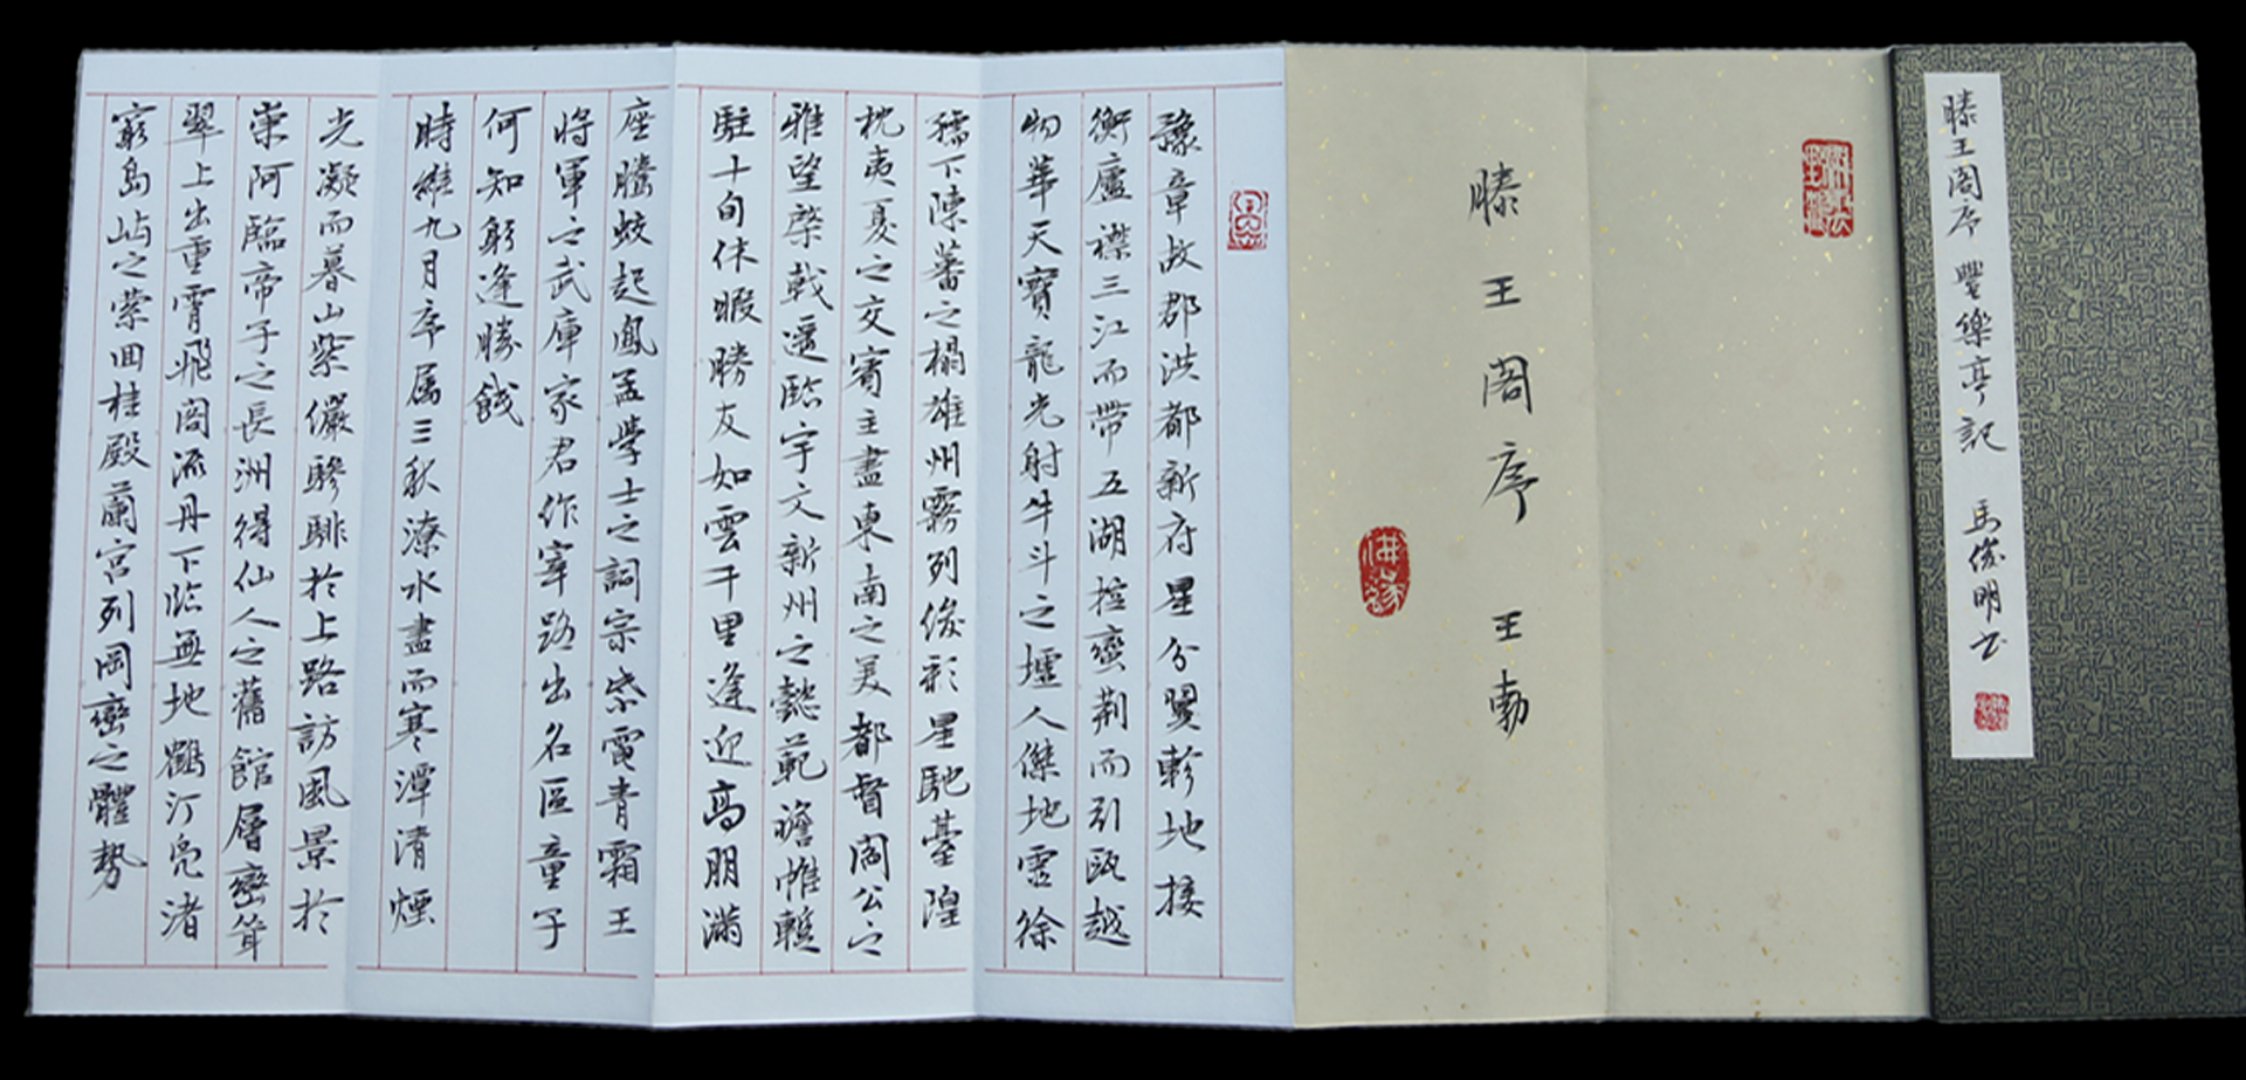 滕王阁序 豐樂亭記 馬俊明书
滕王阁序 王勃
豫章故郡洪都新府星分翼軫地接
衡廬襟三江而帶五湖控蠻荆而引甌越
物華天寶龍光射牛斗之墟人傑地靈徐
孺下陳蕃之榻雄州霧列俊彩星馳臺隍
枕夷夏之交賓主盡東南之美都督阎公之
雅望棨戟遥臨宇文新州之懿範襜帷暫
駐十旬休暇勝友如雲千里逢迎高朋滿
座騰蛟起鳳孟學士之詞宗紫電青霜王
将軍之武庫家君作宰路出名區童子
何知躬逢勝餞
時維九月序属三秋潦水盡而寒潭清煙
光凝而暮山紫儼驂騑於上路訪風景於
崇阿臨帝子之長洲得仙人之舊館層巒聳
翠上出重霄飛阁流丹下临無地鶴汀凫渚
窮島屿之縈回桂殿蘭宫列岡巒之體勢